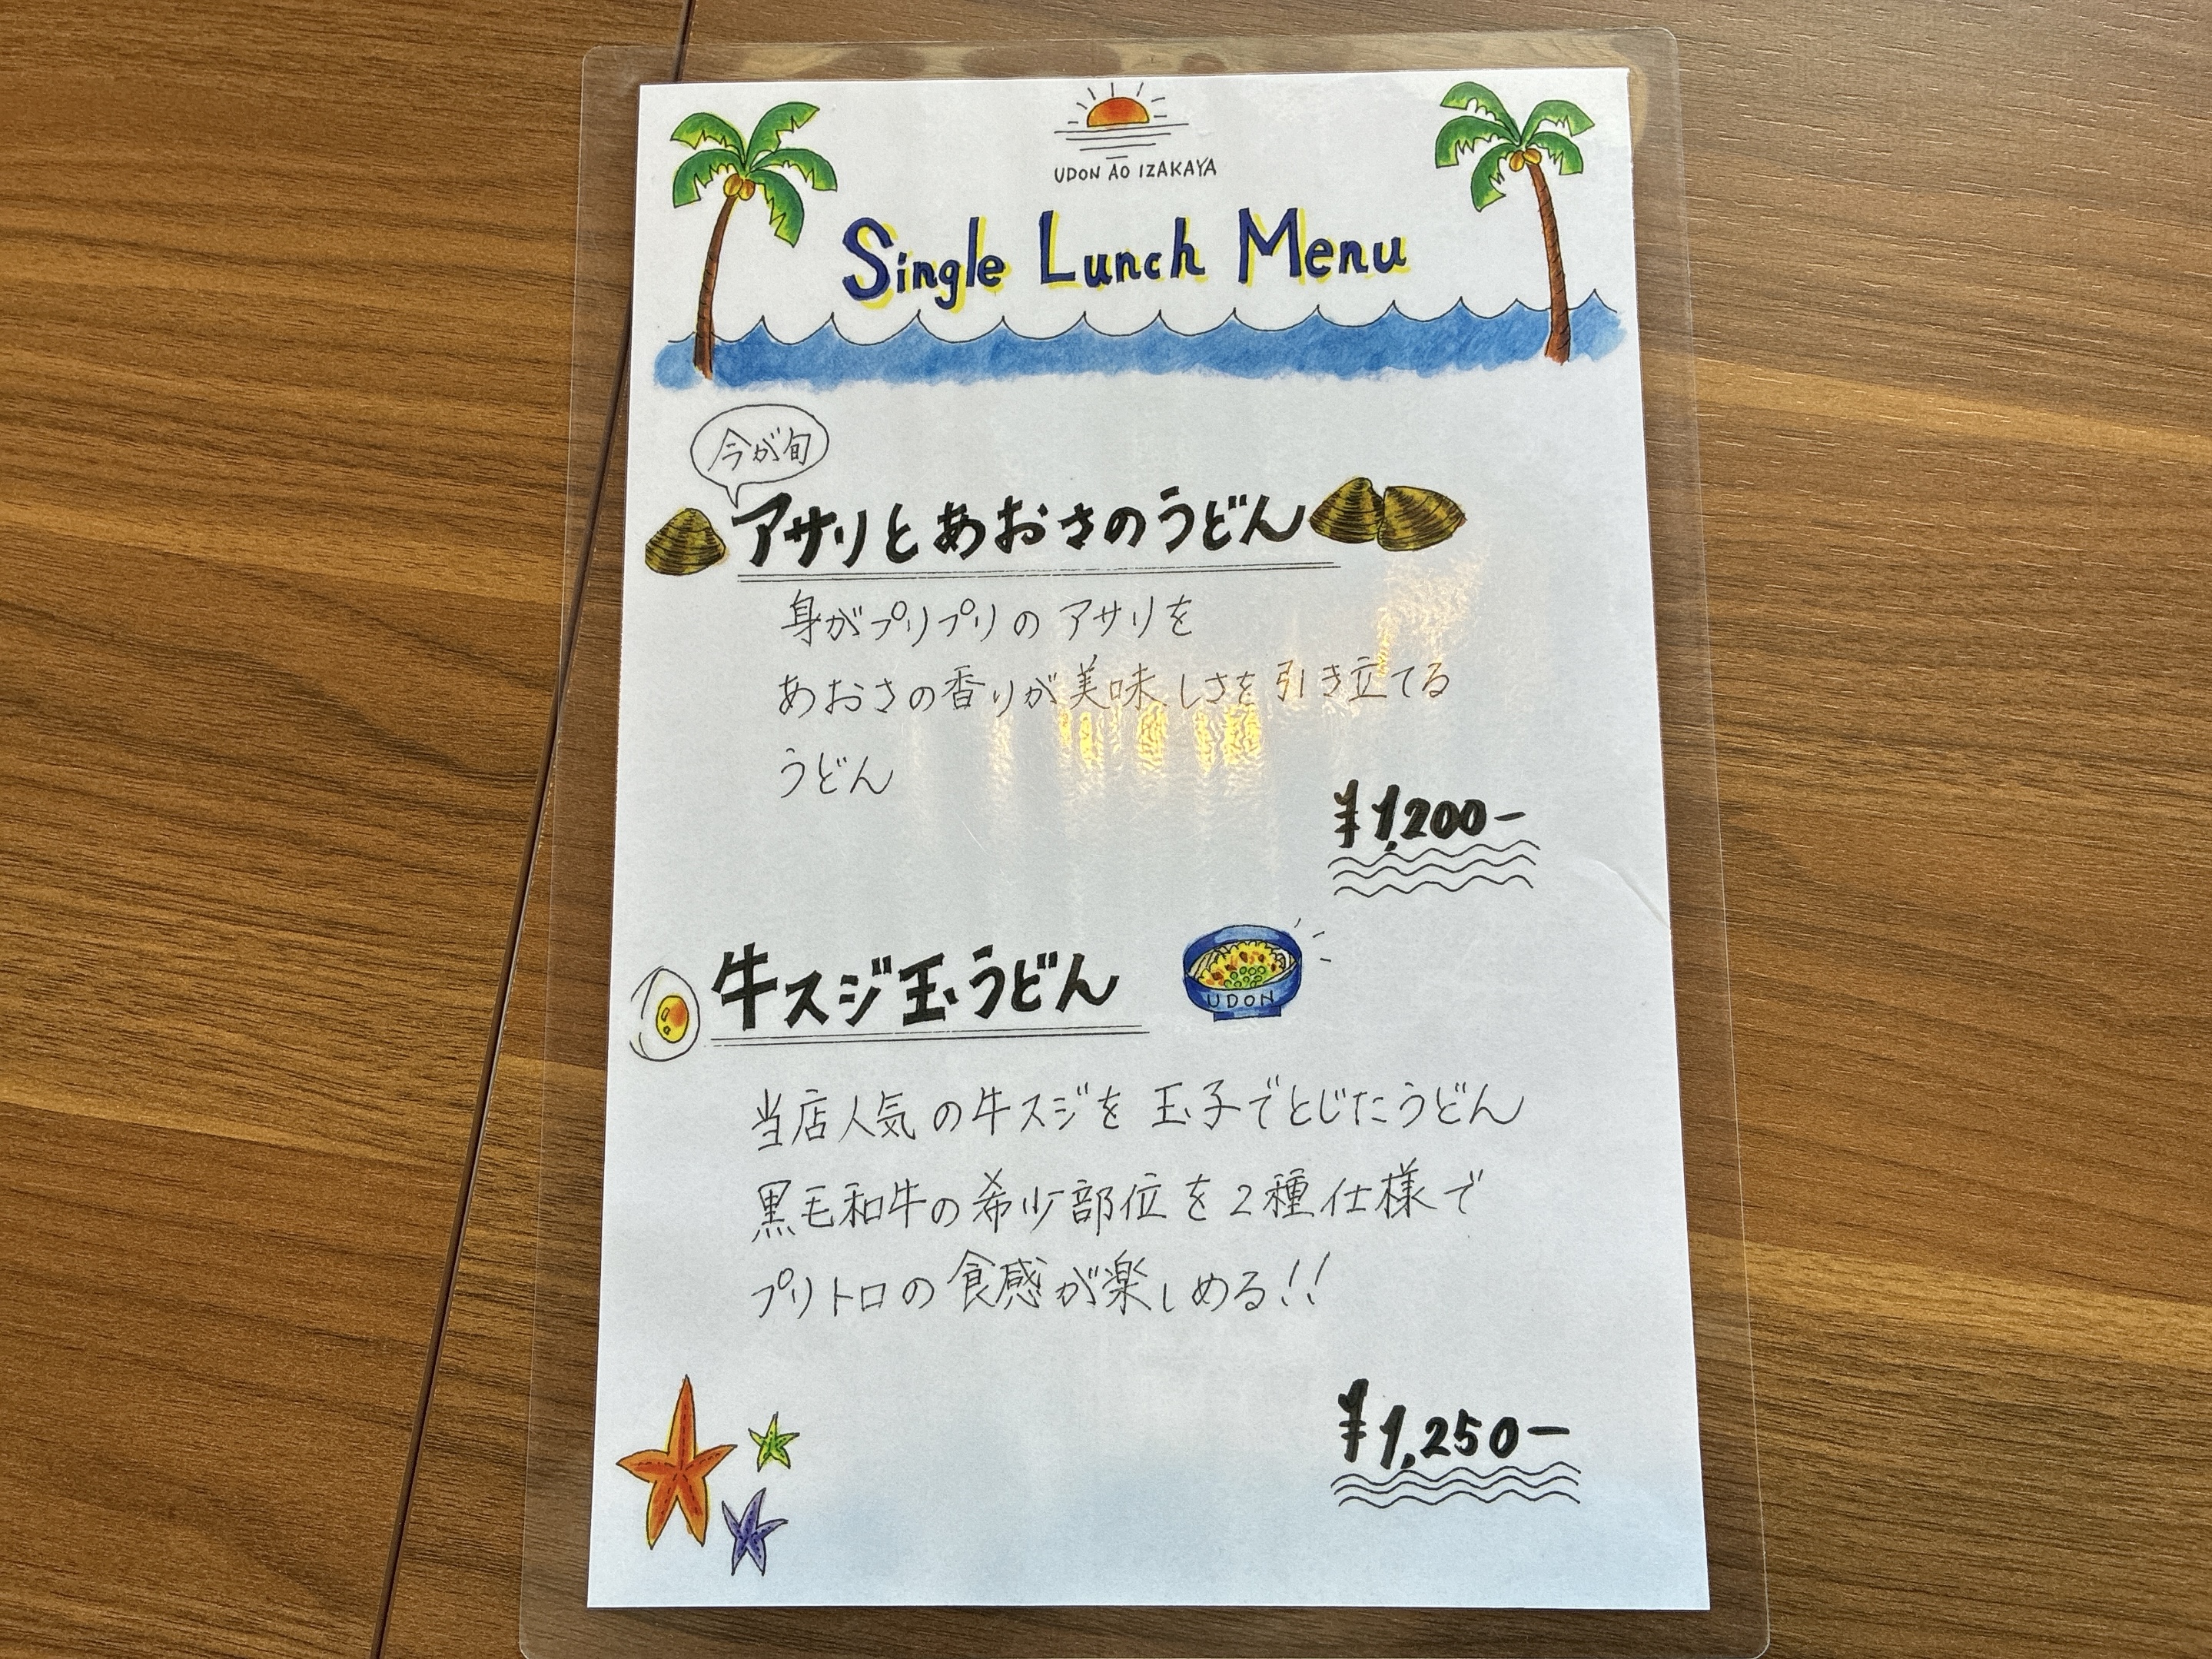 UDON AO IZAKAYA
Single Lunch Menu
今が旬
アサリとあおさのうどん
身がプリプリのアサリを
あおさの香りが美味しさを引き立てる
うどん
¥1,200-
牛スジ玉うどん
UDON
当店人気の牛スジを玉子でとじたうどん
黒毛和牛の希少部位を2種仕様で
プリトロの食感が楽しめる!!
¥1,250-